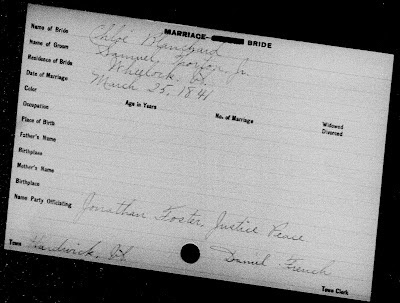 MARRIAGE— BRIDE
Name of Bride Chloe Blanchard
Name of Groom Samuel Jr.
Residence of Bride Wheelock, Vt.
Date of Marriage March 25, 1841
Color Age in Years No. of Marriage Widowed Divorced
Occupation
Place of Birth
Father's Name
Birthplace
Mother's Name
Birthplace
Name Party Officiating Jonathan Foster, Justice Peace
Town Hardwick, Vt Daniel French
Town Clerk